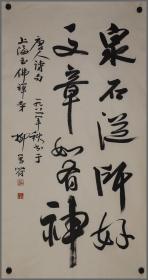 泉石從師好
文章如有神
唐人诗句 一九八 年秋书于
上海玉佛禅寺